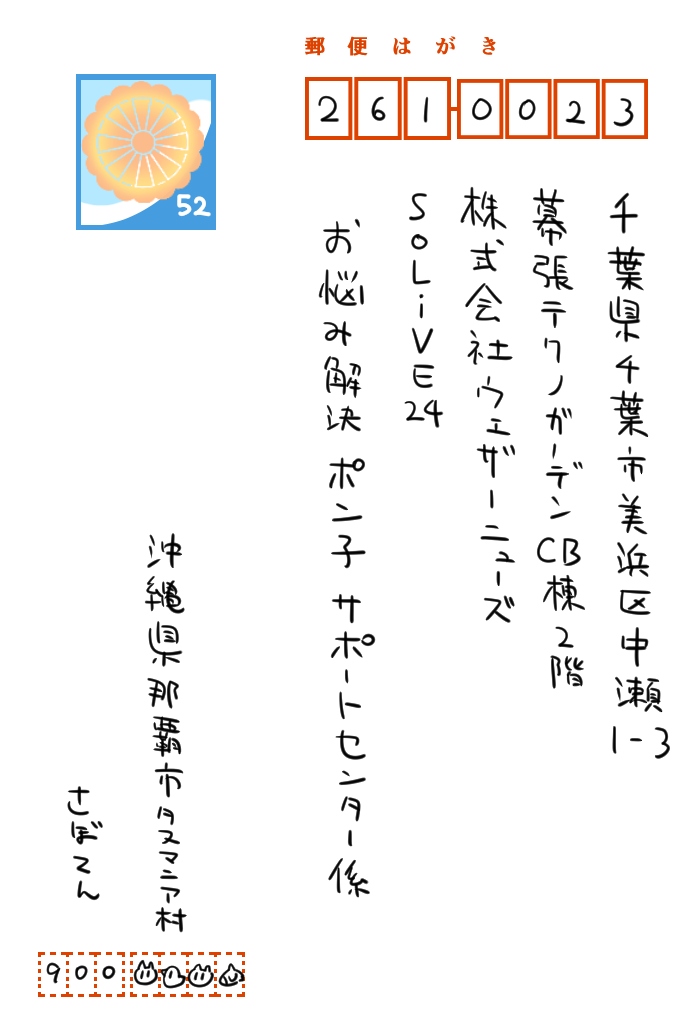 郵便はがき
261-0023
52
千葉県千葉市美浜区中瀬1-3
幕張テクノガーデンCB棟2階
株式会社ウェザーニューズ
SOLiVE24
お悩み解決 ポン子 サポートセンター係
沖縄県那覇市タスマニア村
さぼてん
900